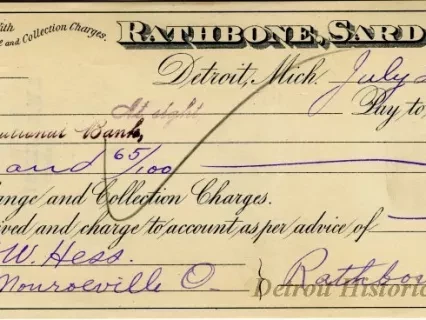 With
and Collection Charges. RATHBONE, SARD
Detroit, Mich. July
At sight Pay to
National Bank,
and 65/100
ange and Collection Charges.
ived and charge to account as per advice of
W. Hess.
Monroeville O. } Rathbo
Detroit Historic